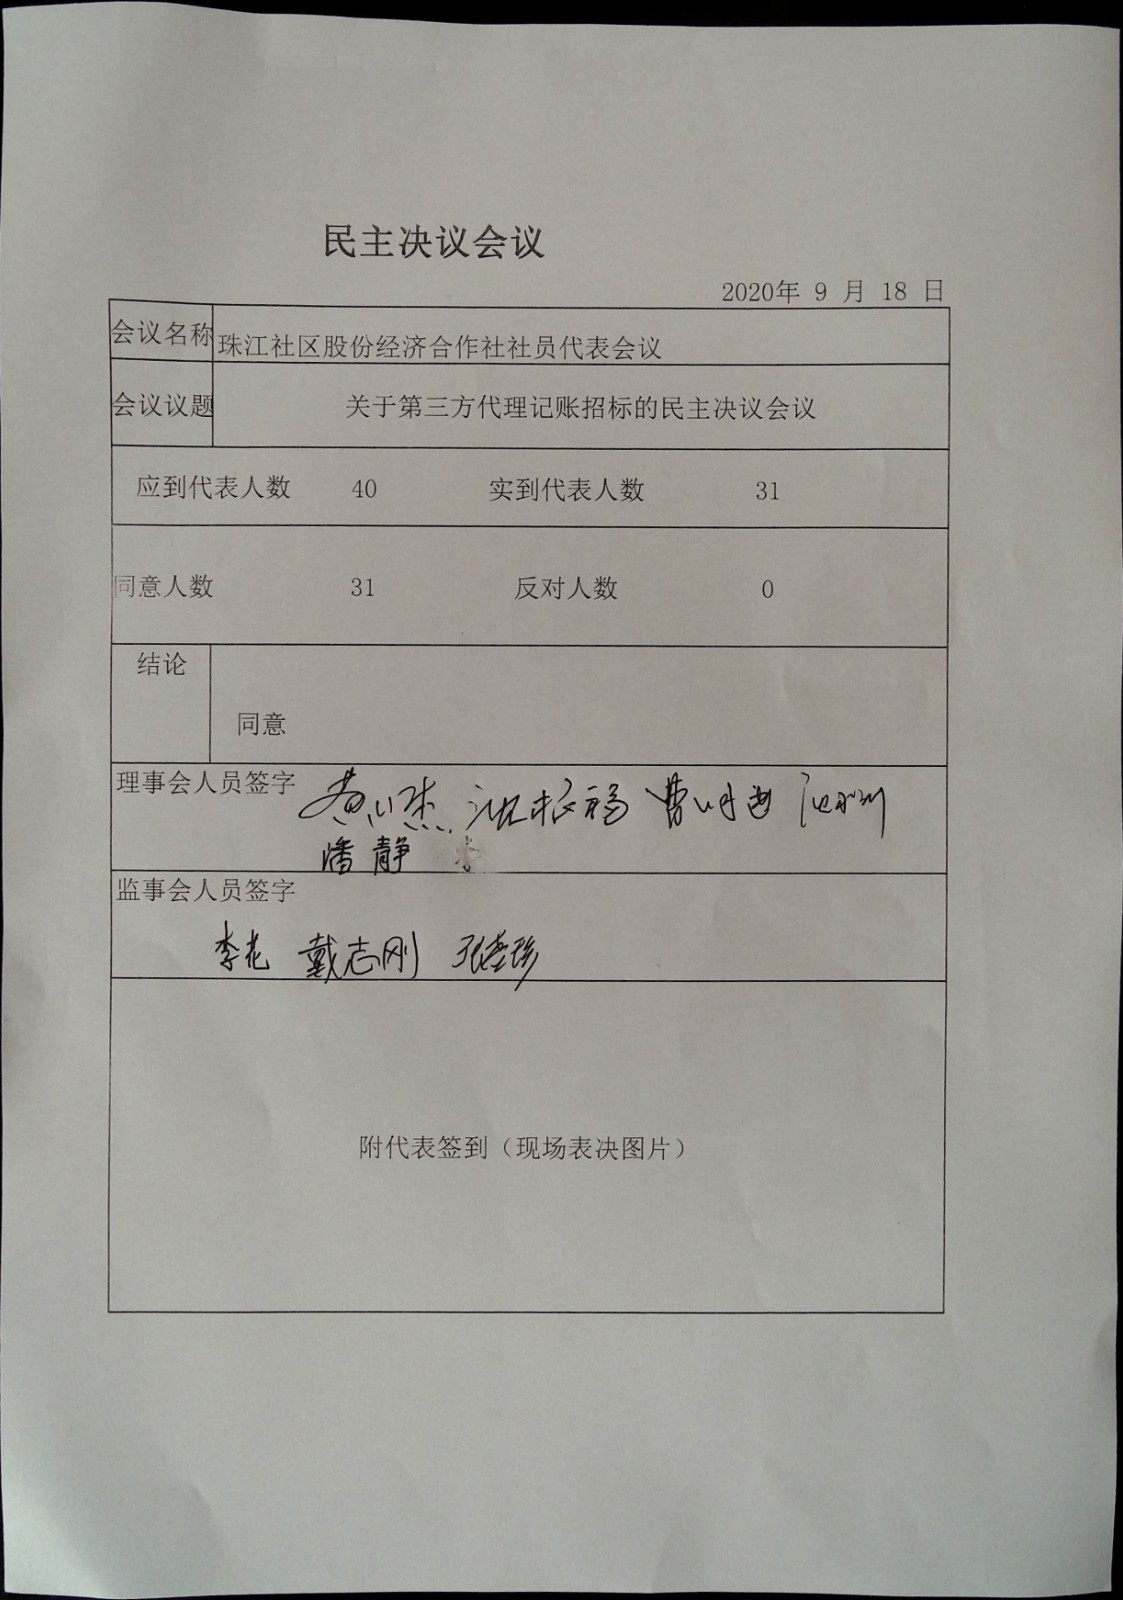 民主决议会议
2020年 9 月 18 日
会议名称 珠江社区股份经济合作社社员代表会议
会议议题 关于第三方代理记账招标的民主决议会议
应到代表人数 40 实到代表人数 31
同意人数 31 反对人数 0
结论
同意
理事会人员签字
潘静
监事会人员签字
李花 戴志刚
附代表签到（现场表决图片）